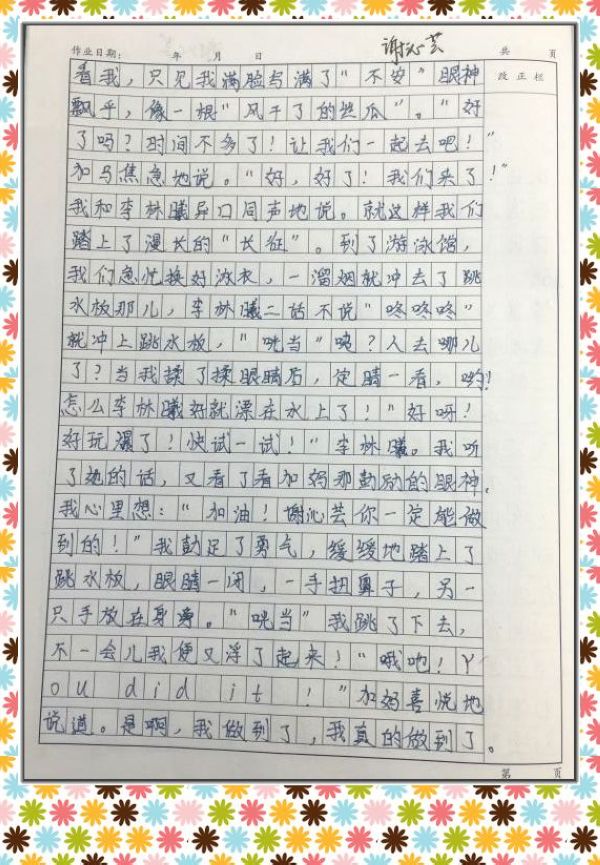 谢沁芸
作业日期： 年 月 日 共 页
改正栏
看我，只见我满脸写满了“不安”眼神
飘乎，像一根“风干了的丝瓜”。“好
了吗？时间不多了！让我们一起去吧！”
加马焦急地说。“好，好了！我们来了！”
我和李林曦异口同声地说。就这样我们
踏上了漫长的“长征”。到了游泳馆，
我们急忙换好泳衣，一溜烟就冲去了跳
水板那儿，李林曦二话不说“咚咚咚”
就冲上跳水板，“咣当”咦？人去哪儿
了？当我揉了揉眼睛后，定睛一看，哟！
怎么李林曦好就漂在水上了！“好呀！
好玩爆了！快试一试！”李林曦。我听
了她的话，又看了看加妈那鼓励的眼神，
我心里想：“加油！谢沁芸你一定能做
到的！”我鼓足了勇气，缓缓地踏上了
跳水板，眼睛一闭，一手扭鼻子，另一
只手放在身旁。“咣当”我跳了下去，
不一会儿我便又浮了起来！“哦吔！Y
ou did it！”加妈喜悦地
说道。是啊，我做到了，我真的做到了。
第 页